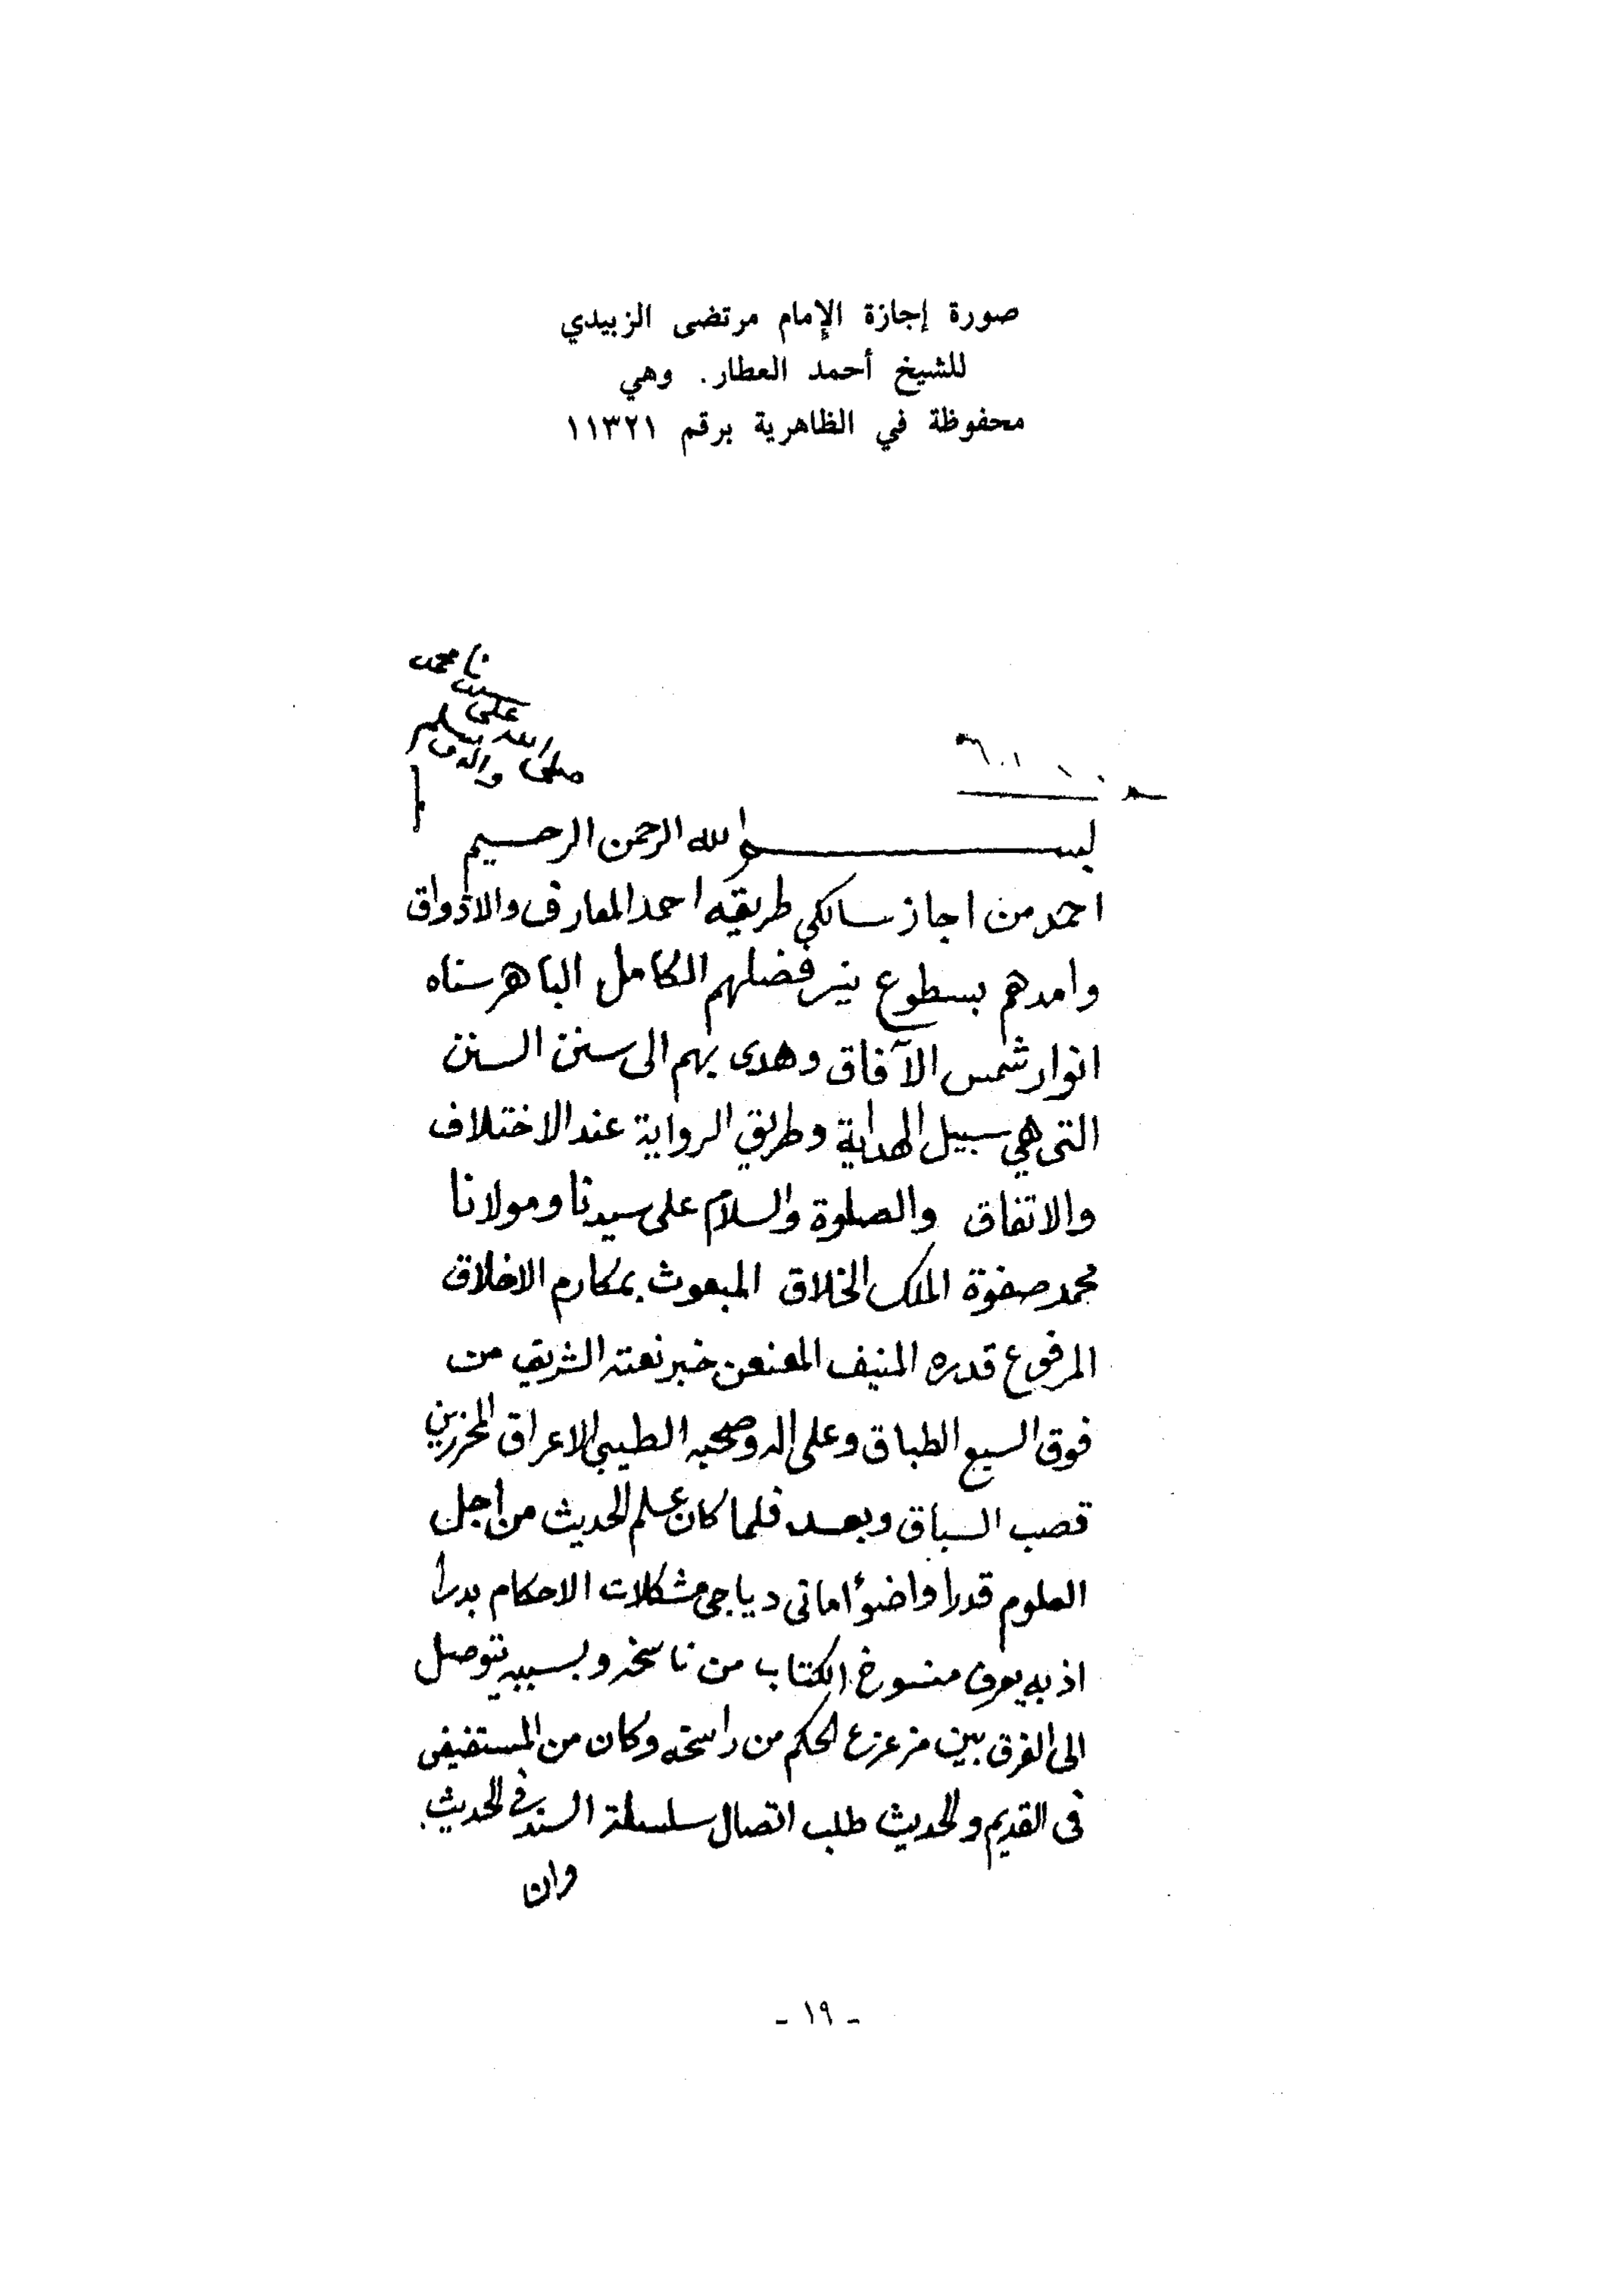 صورة إجازة الإمام مرتضى الزبيدي
للشيخ أحمد العطار. وهي
محفوظة في الظاهرية برقم ١١٣٢١
على
صلى الله وسلم
بسم الله الرحمن الرحيم
احمد من اجاز سالكي طريقه احمد المعارف والاذواق
وامدهم بسطوع نير فضلهم الكامل الباهر سناه
انوار شمس الآفاق وهدى بهم الى سنن السنن
التى هي سبيل الهداية وطريق الرواية عند الاختلاف
والاتفاق والصلوة والسلام على سيدنا ومولانا
محمد صفوة الملك الخلاق المبعوث بمكارم الاخلاق
المرفوع قدره المنيف المعنعن خبر نعته الشريف من
فوق السبع الطباق وعلى اله وصحبه الطيبي الاعراق المحرزين
قصب السباق وبعد فلما كان علم الحديث من اجل
العلوم قدرا واضوأها فى دياجى مشكلات الاحكام بدرا
اذ به يعرف منسوخ الكتاب من ناسخه وبسببه يتوصل
الى الفرق بين مزعزع الحكم من راسخه وكان من المستفيض
فى القديم والحديث طلب اتصال سلسلة السند في الحديث
وان
- ١٩ -